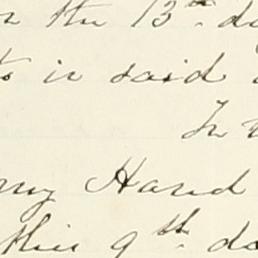 on the 13th. da
ts in said
In
my Hand
this 9th. da